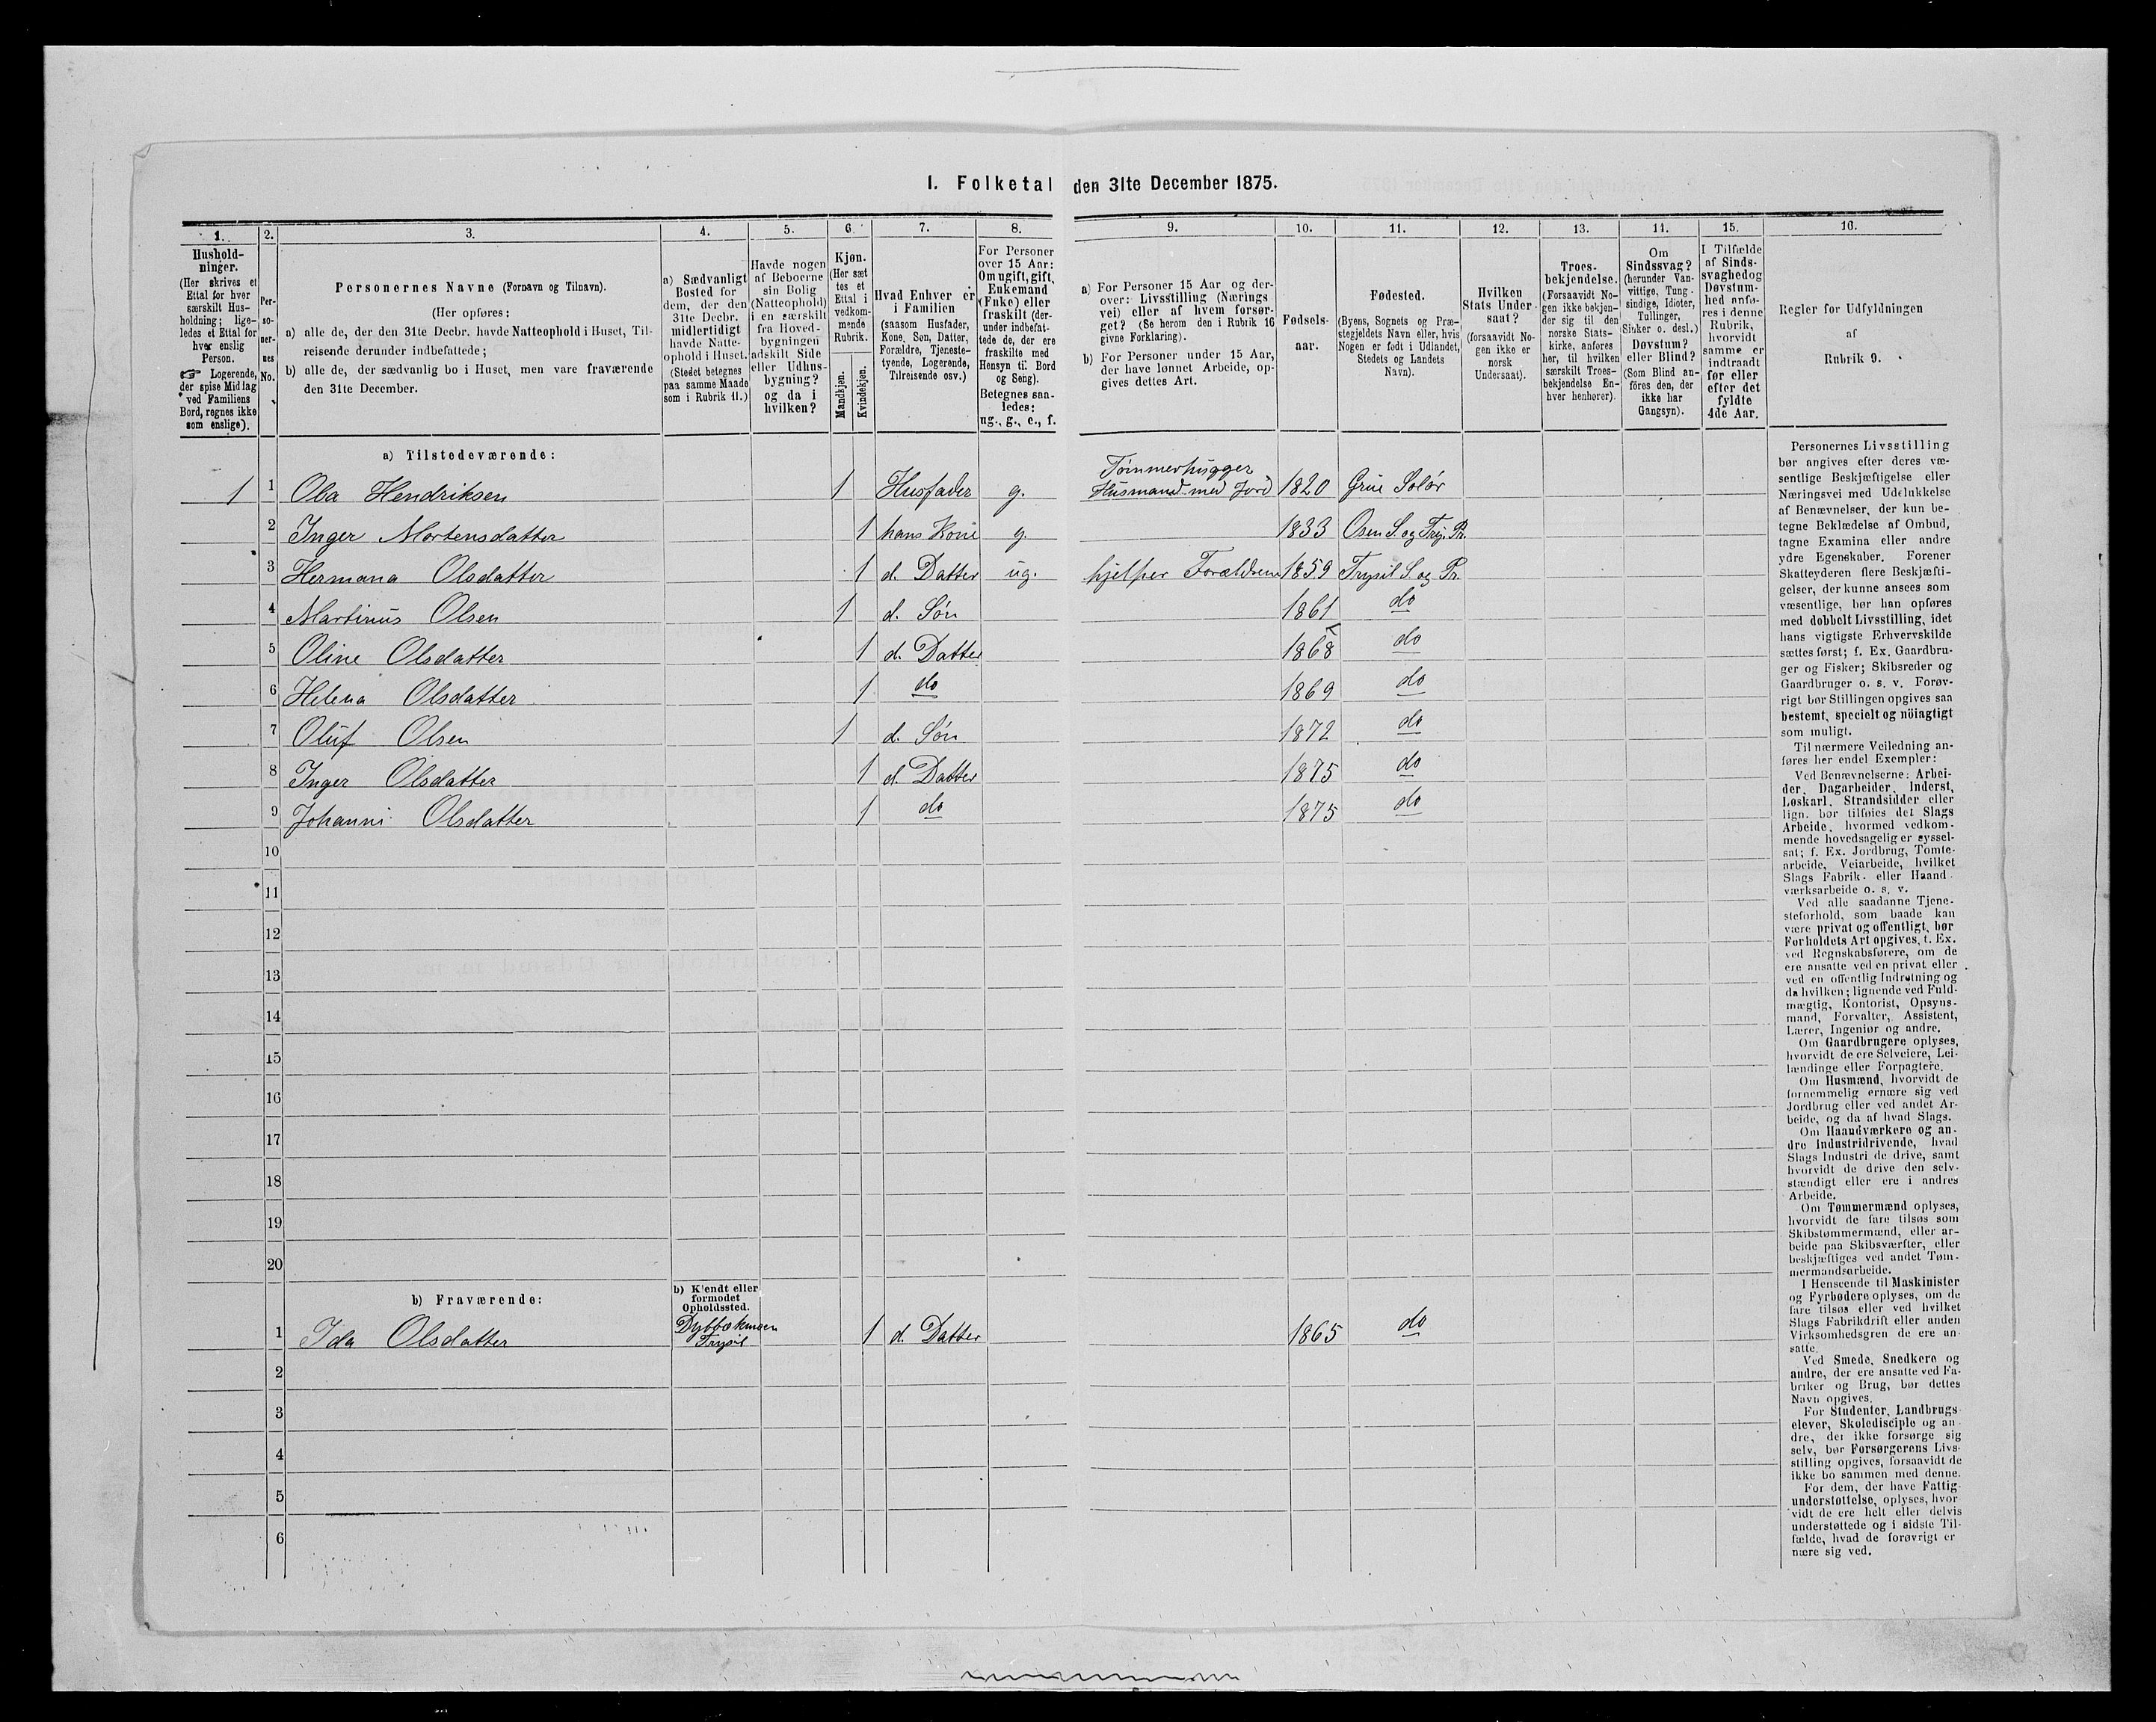 I. Folketal den 31te December 1875.
1.
Hushold-
ninger.
(Her skrives et
Ettal for hver
særskilt Hus-
holdning; lige-
ledes et Ettal for
hver enslig
Person.
☞ Logerende,
der spise Middag
ved Familiens
Bord, regnes ikke
som enslige).
2.
Per-
so-
ner-
nes
No.
3.
Personernes Navne (Fornavn og Tilnavn).
(Her opføres:
a) alle de, der den 31te Decbr. havde Natteophold i Huset, Til-
reisende derunder indbefattede;
b) alle de, der sædvanlig bo i Huset, men vare fraværende
den 31te December.
4.
a) Sædvanligt
Bosted for
dem, der den
31te Decbr.
midlertidigt
havde Natte-
ophold i Huset.
(Stedet betegnes
paa samme Maade
som i Rubrik 11.)
5.
Havde nogen
af Beboerne
sin Bolig
(Natteophold)
i en særskilt
fra Hoved-
bygningen
adskilt Side
eller Udhus-
bygning?
og da i
hvilken?
6.
Kjøn.
(Her sæt
tes et
Ettal i
vedkom-
mende
Rubrik.
Mandkjøn.
Kvindekjøn.
7.
Hvad Enhver er
i Familien
(saasom Husfader,
Kone, Søn, Datter,
Forældre, Tjeneste-
tyende, Logerende,
Tilreisende osv.)
8.
For Personer
over 15 Aar:
Om ugift, gift,
Enkemand
(Enke) eller
fraskilt (der-
under indbefat-
tede de, der ere
fraskilte med
Hensyn til Bord
og Seng).
Betegnes saa-
ledes:
ug., g., e., f.
9.
a) For Personer 15 Aar og der-
over: Livsstilling (Nærings
vei) eller af hvem forsør-
get? (Se herom den i Rubrik 16
givne Forklaring).
b) For Personer under 15 Aar,
der have lønnet Arbeide, op-
gives dettes Art.
10.
Fødsels-
aar.
11.
Fødested.
(Byens, Sognets og Præ-
stegjeldets Navn eller, hvis
Nogen er født i Udlandet,
Stedets og Landets
Navn).
12.
Hvilken
Stats Under-
saat?
(forsaavidt No-
gen ikke er
norsk
Undersaat).
13.
Troes-
bekjendelse.
(Forsaavidt No-
gen ikke bekjen-
der sig til den
norske Stats-
kirke, anføres
her, til hvilken
særskilt Troes-
bekjendelse En-
hver henhører).
11.
Om
Sindssvag?
(herunder Van-
vittige, Tung-
sindige, Idioter,
Tullinger,
Sinker o. desl.)
Døvstum?
eller Blind?
(Som Blind an-
føres den, der
ikke har
Gangsyn).
15.
I Tilfælde
af Sinds-
svaghed og
Døvstum-
hed anfø-
res i denne
Rubrik,
hvorvidt
samme er
indtraadt
før eller
efter det
fyldte
4de Aar.
16.
Regler for Udfyldningen
af
Rubrik 9.
a) Tilstedeværende:
Tømmerhugger
1 1 Ola Hendriksen 1 Husfader g. Husmand med Jord 1820 Grue Solør
2 Inger Mortensdatter 1 hans Kone g. 1833 Osen S. og Try. Pr.
3 Hermana Olsdatter 1 d. Datter ug. hjelper Forældrene 1859 Trysil S. og Pr.
4 Martinus Olsen 1 d. Søn 1861 do
5 Oline Olsdatter 1 d. Datter 1868 do
6 Helena Olsdatter 1 do 1869 do
7 Oluf Olsen 1 d. Søn 1872 do
8 Inger Olsdatter 1 d. Datter 1875 do
9 Johanni Olsdatter 1 do 1875 do
10
11
12
13
14
15
16
17
18
19
20
b) Fraværende:
b) Kjendt eller
formodet
Opholdssted.
1 Ida Olsdatter Trysil 1 d. Datter 1865 do
2
3
4
5
6
Personernes Livsstilling
bør angives efter deres væ-
sentlige Beskjæftigelse eller
Næringsvei med Udelukkelse
af Benævnelser, der kun be-
tegne Beklædelse af Ombud,
tagne Examina eller andre
ydre Egenskaber. Forener
Skatteyderen flere Beskjæfti-
gelser, der kunne ansees som
væsentlige, bør han opføres
med dobbelt Livsstilling, idet
hans vigtigste Erhvervskilde
sættes først; f. Ex. Gaardbru-
ger og Fisker; Skibsreder og
Gaardbruger o. s. v. Forøv-
rigt bør Stillingen opgives saa
bestemt, specielt og nöiagtigt
som muligt.
Til nærmere Veiledning an-
føres her endel Exempler:
Ved Benævnelserne: Arbei-
der, Dagarbeider, Inderst,
Løskarl, Strandsidder eller
lign. bør tilføies det Slags
Arbeide, hvormed vedkom-
mende hovedsagelig er syssel-
sat; f. Ex. Jordbrug, Tomte-
arbeide, Veiarbeide, hvilket
Slags Fabrik- eller Haand-
værksarbeide o. s. v.
Ved alle saadanne Tjene-
steforhold, som baade kan
være privat og offentligt, bør
Forholdets Art opgives, t. Ex.
ved Regnskabsførere, om de
ere ansatte ved en privat eller
ved en offentlig Indretning og
da hvilken; lignende ved Fuld-
mægtig, Kontorist, Opsyns-
mand, Forvalter, Assistent,
Lærer, Ingeniør og andre.
Om Gaardbrugere oplyses,
hvorvidt de ere Selveiere, Lei-
lændinge eller Forpagtere.
Om Husmænd, hvorvidt de
fornemmelig ernære sig ved
Jordbrug eller ved andet Ar-
beide, og da af hvad Slags.
Om Haandværkere og an-
dre Industridrivende, hvad
Slags Industri de drive, samt
hvorvidt de drive den selv-
stændigt eller ere i andres
Arbeide.
Om Tømmermænd oplyses,
hvorvidt de fare tilsøs som
Skibstømmermænd, eller ar-
beide paa Skibsværfter, eller
beskjæftiges ved andet Tøm-
mermandsarbeide.
I Henseende til Maskinister
og Fyrbødere oplyses, om de
fare tilsøs eller ved hvilket
Slags Fabrikdrift eller anden
Virksomhedsgren de ere an-
satte.
Ved Smede, Snedkere og
andre, der ere ansatte ved Fa-
briker og Brug, bør dettes
Navn opgives.
For Studenter, Landbrugs-
elever, Skoledisciple og an-
dre, der ikke forsørge sig
selv, bør Forsørgerens Livs-
stilling opgives, forsaavidt de
ikke bo sammen med denne.
For dem, der have Fattig-
understøttelse, oplyses, hvor-
vidt de ere helt eller delvis
understøttede og i sidste Til-
fælde, hvad de forøvrigt er-
nære sig ved.